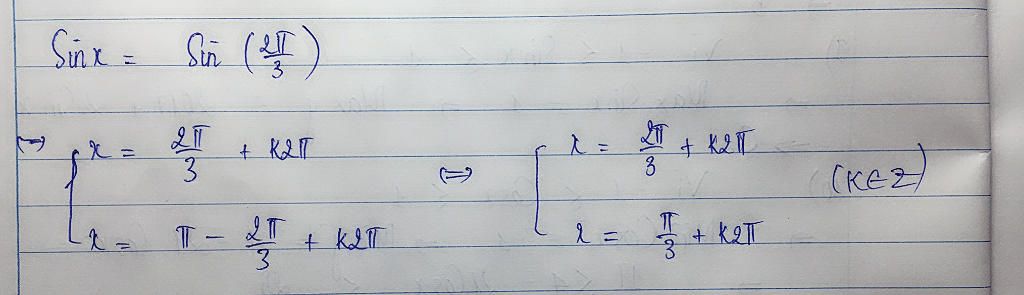 Sin x = Sin (2π/3)
⇔ [ x = 2π/3 + k2π ⇔ [ x = 2π/3 + k2π (k∈Z)
x = π − 2π/3 + k2π x = π/3 + k2π